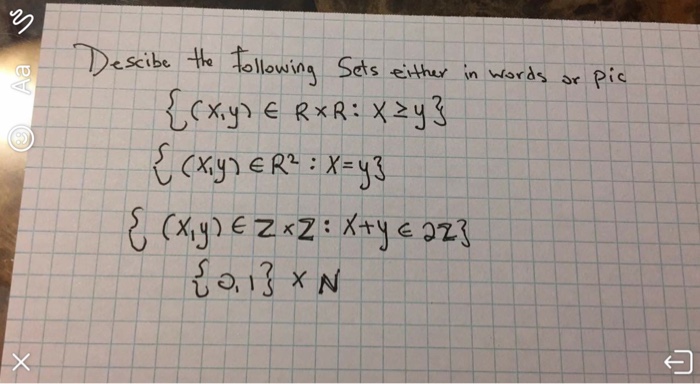 Descibe the following Sets either in words or pic
{(x,y) ∈ R×R: x≥y}
{(x,y) ∈ R² : x=y}
{(x,y) ∈ Z×Z: x+y ∈ 2Z}
{0,1} × N
Aa